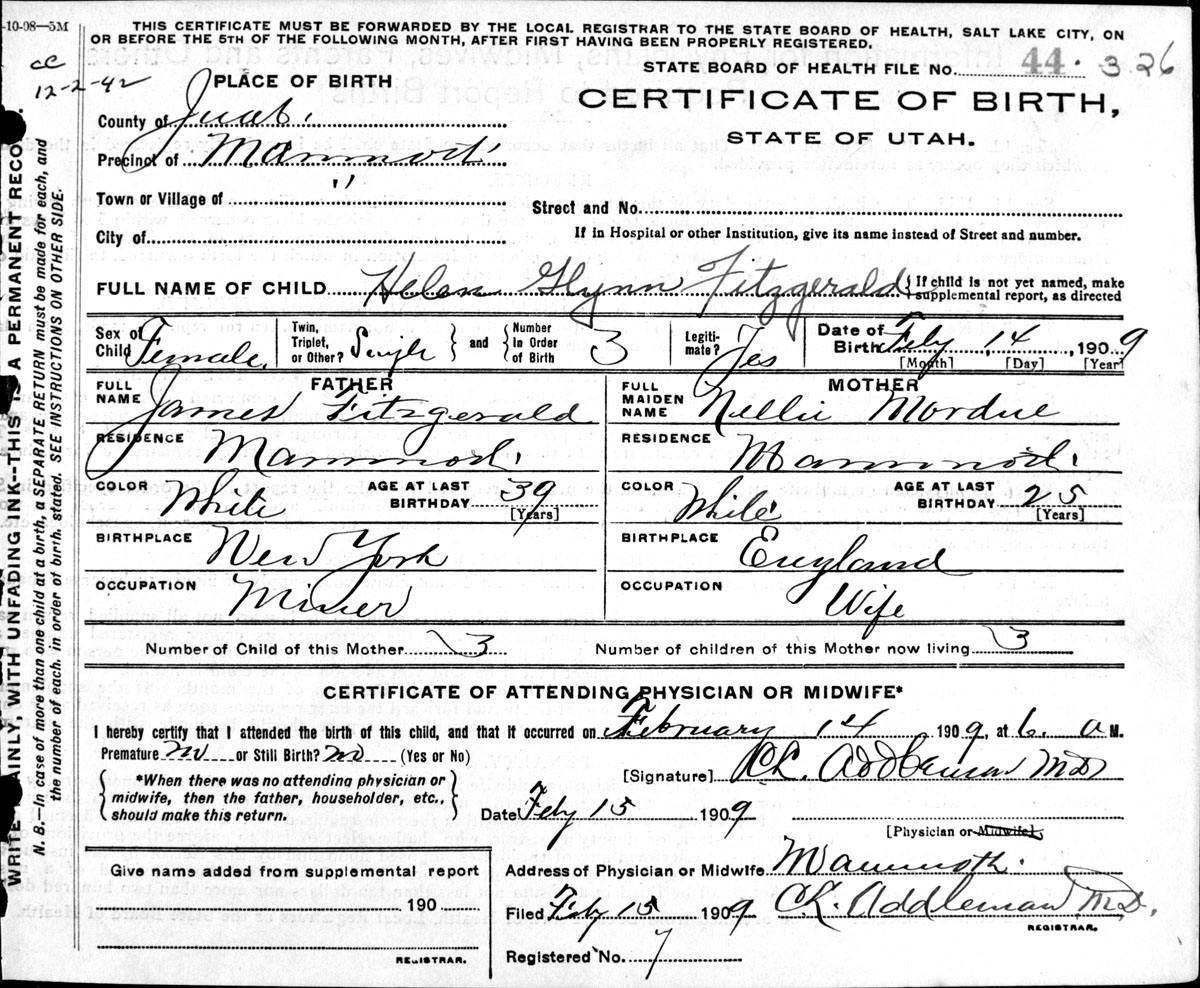 -10-08—5M
THIS CERTIFICATE MUST BE FORWARDED BY THE LOCAL REGISTRAR TO THE STATE BOARD OF HEALTH, SALT LAKE CITY, ON
OR BEFORE THE 5TH OF THE FOLLOWING MONTH, AFTER FIRST HAVING BEEN PROPERLY REGISTERED.
cc
12-2-42
PLACE OF BIRTH
STATE BOARD OF HEALTH FILE No. 44 · 326
CERTIFICATE OF BIRTH,
STATE OF UTAH.
County of Juab.
Precinct of Mammoth
Town or Village of "
Street and No.
City of
If in Hospital or other Institution, give its name instead of Street and number.
FULL NAME OF CHILD Helen Glynn Fitzgerald { If child is not yet named, make
supplemental report, as directed
Sex of Child Female. Twin, Triplet, or Other? Single } and { Number In Order of Birth 3 Legiti-mate? Yes Date of Birth Feby 14, 1909
[Month] [Day] [Year]
FATHER
FULL NAME James Fitzgerald
RESIDENCE Mammoth.
COLOR White AGE AT LAST BIRTHDAY 39
[Years]
BIRTHPLACE New York
OCCUPATION Miner
MOTHER
FULL MAIDEN NAME Nellie Mordue
RESIDENCE Mammoth.
COLOR White AGE AT LAST BIRTHDAY 25
[Years]
BIRTHPLACE England
OCCUPATION Wife
Number of Child of this Mother 3 Number of children of this Mother now living 3
CERTIFICATE OF ATTENDING PHYSICIAN OR MIDWIFE*
I hereby certify that I attended the birth of this child, and that it occurred on February 14 1909, at 6. a M.
Premature no or Still Birth? no (Yes or No)
{ *When there was no attending physician or
midwife, then the father, householder, etc.,
should make this return. }
[Signature] CK. Addleman MD
Date Feby 15 1909
[Physician or Midwife]
Give name added from supplemental report
190
REGISTRAR.
Address of Physician or Midwife Mammoth.
Filed Feby 15 1909 CK. Addleman M.D.
REGISTRAR.
Registered No. 7
WRITE PLAINLY WITH UNFADING INK—THIS IS A PERMANENT RECO
N. B.—In case of more than one child at a birth, a SEPARATE RETURN must be made for each, and
the number of each, in order of birth, stated. SEE INSTRUCTIONS ON OTHER SIDE.